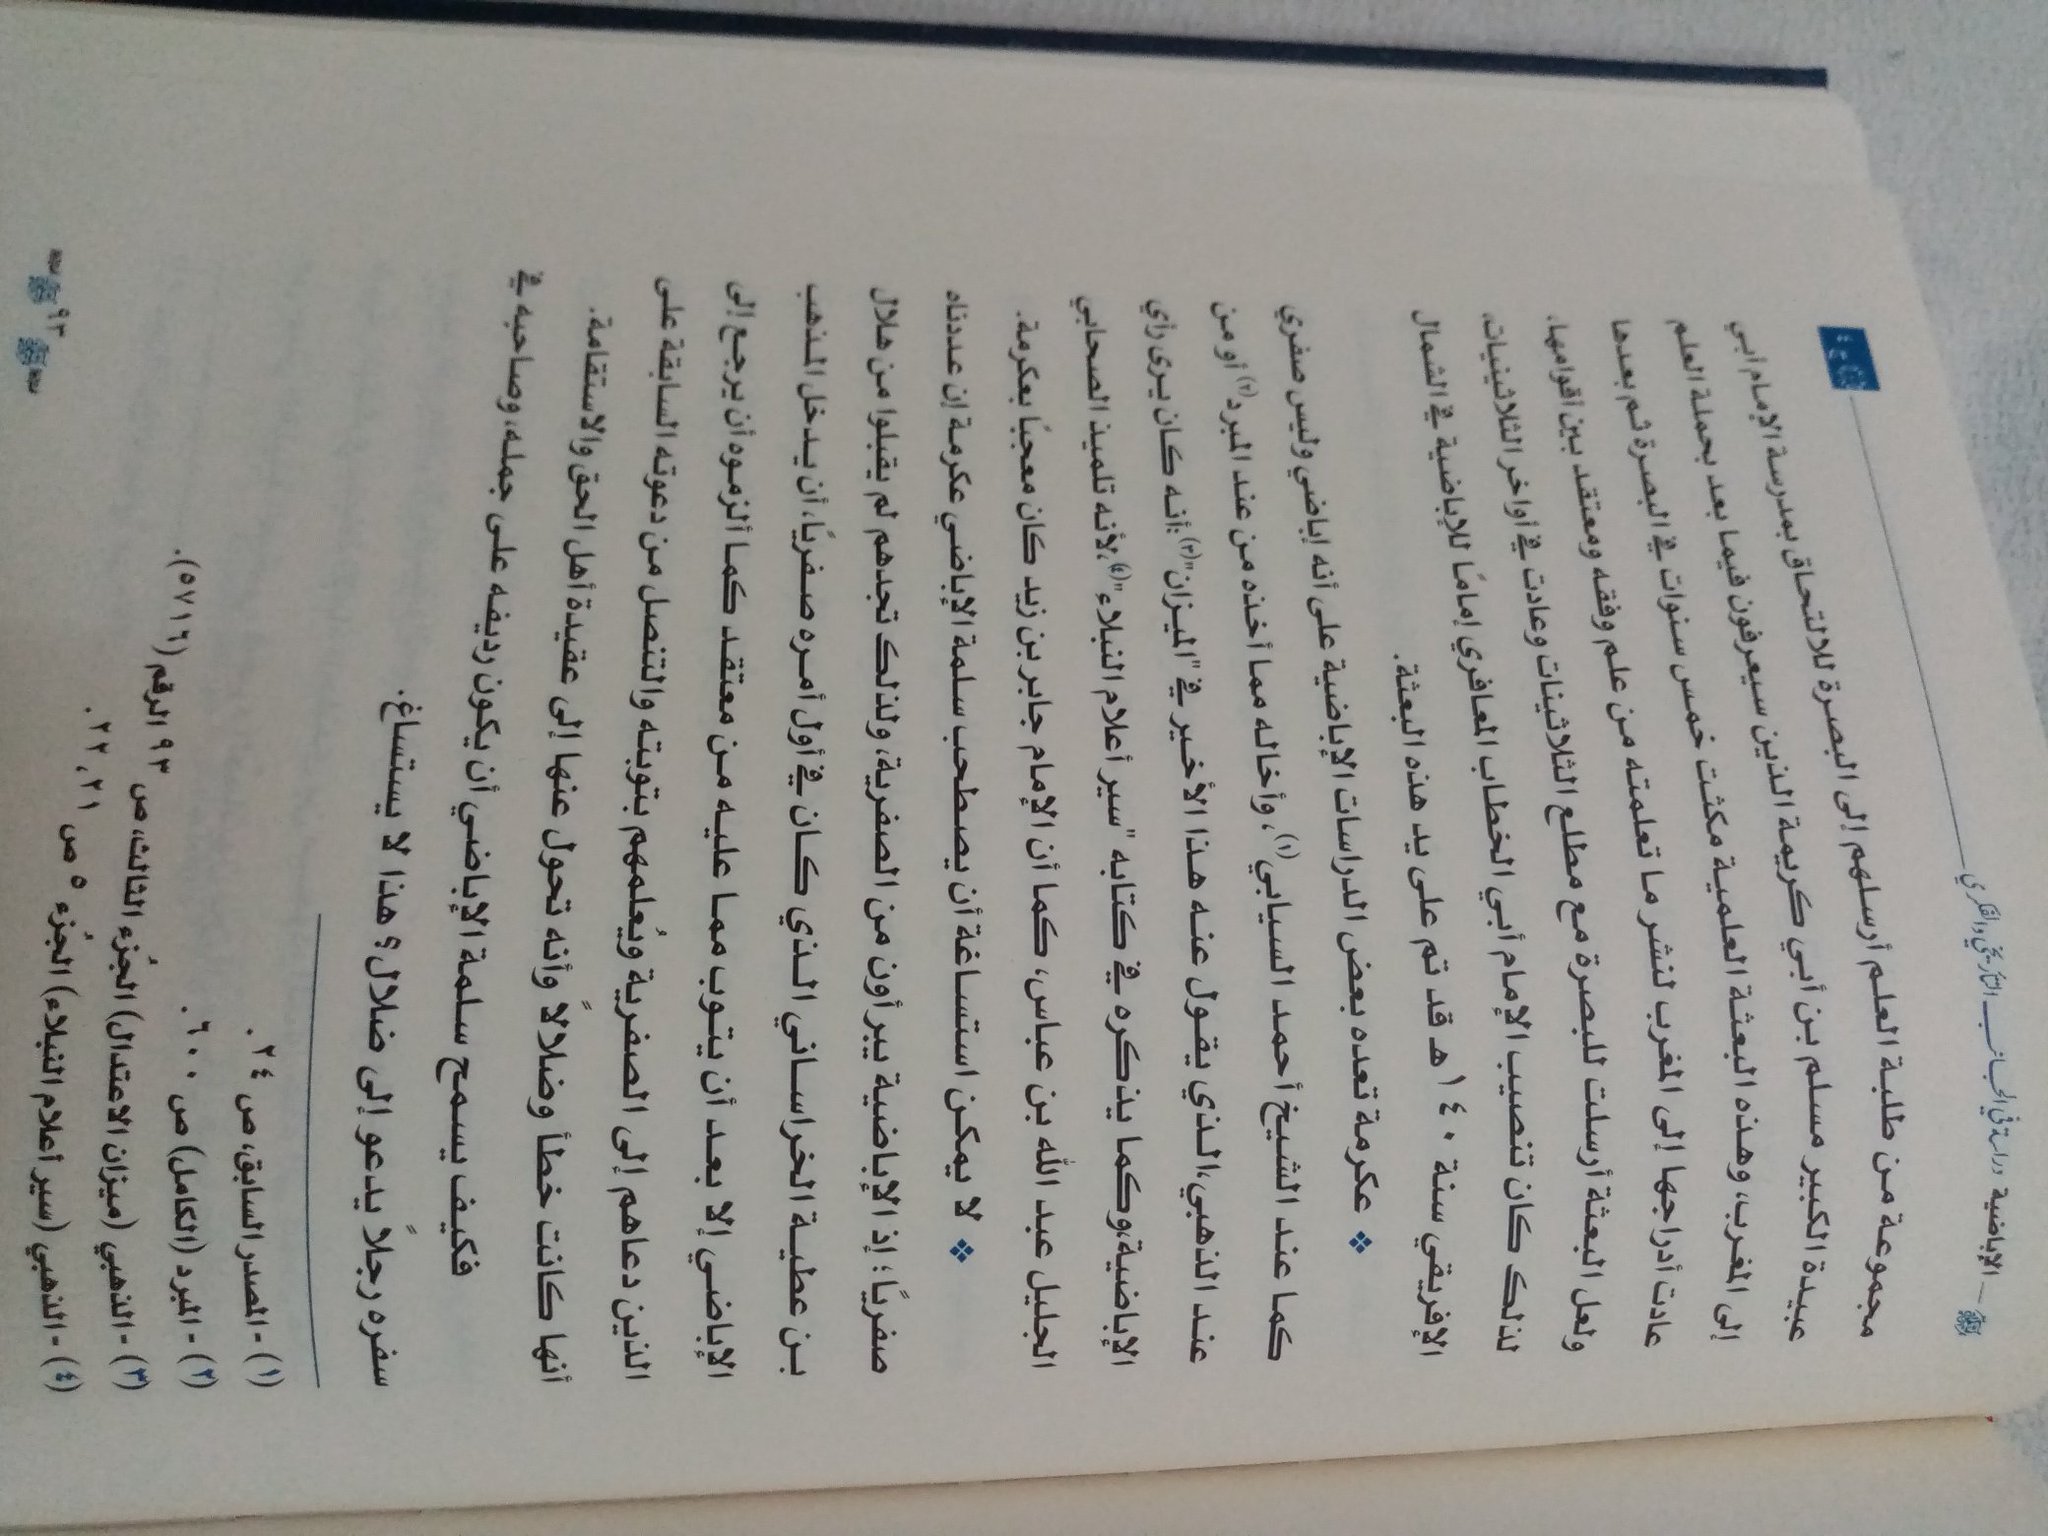 الإباضية دراسة في الجانب التاريخي والفكري
ج ٤
مجموعة من طلبة العلم أرسلهم إلى البصرة للالتحاق بمدرسة الإمام أبي
عبيدة الكبير مسلم بن أبي كريمة الذين سيعرفون فيما بعد بحملة العلم
إلى المغرب، وهذه البعثة العلمية مكثت خمس سنوات في البصرة ثم بعدها
عادت أدراجها إلى المغرب لنشر ما تعلمته من علم وفقه ومعتقد بين أقوامها،
ولعل البعثة أرسلت للبصرة مع مطلع الثلاثينات وعادت في أواخر الثلاثينيات،
لذلك كان تنصيب الإمام أبي الخطاب المعافري إمامًا للإباضية في الشمال
الإفريقي سنة ١٤٠هـ قد تم على يد هذه البعثة.
❖ عكرمة تعده بعض الدراسات الإباضية على أنه إباضي وليس صفري
كما عند الشيخ أحمد السيابي(١)، وأخاله مما أخذه من عند المبرد(٢) أو من
عند الذهبي،الذي يقول عنه هذا الأخير في "الميزان"(٣):أنه كان يرى رأي
الإباضية،وكما يذكره في كتابه "سير أعلام النبلاء"(٤)،لأنه تلميذ الصحابي
الجليل عبد الله بن عباس، كما أن الإمام جابر بن زيد كان معجبًا بعكرمة.
❖ لا يمكن استساغة أن يصطحب سلمة الإباضي عكرمة إن عددناه
صفريًا؛ إذ الإباضية يبرأون من الصفرية، ولذلك تجدهم لم يقبلوا من هلال
بن عطية الخراساني الذي كان في أول أمره صفريًا، أن يدخل المذهب
الإباضي إلا بعد أن يتوب مما عليه من معتقد كما ألزموه أن يرجع إلى
الذين دعاهم إلى الصفرية ويُعلمهم بتوبته والتنصل من دعوته السابقة على
أنها كانت خطأ وضلالاً وأنه تحول عنها إلى عقيدة أهل الحق والاستقامة.
فكيف يسمح سلمة الإباضي أن يكون رديفه على جمله، وصاحبه في
سفره رجلاً يدعو إلى ضلال؟ هذا لا يستساغ.
(١) - المصدر السابق، ص ٢٤ .
(٢) - المبرد (الكامل) ص ٦٠٠ .
(٣) - الذهبي (ميزان الاعتدال) الجُزء الثالث، ص ٩٣ الرقم (٥٧١٦).
(٤) - الذهبي (سير أعلام النبلاء) الجُزء ٥ ص ٢١، ٢٢ .
٩٣